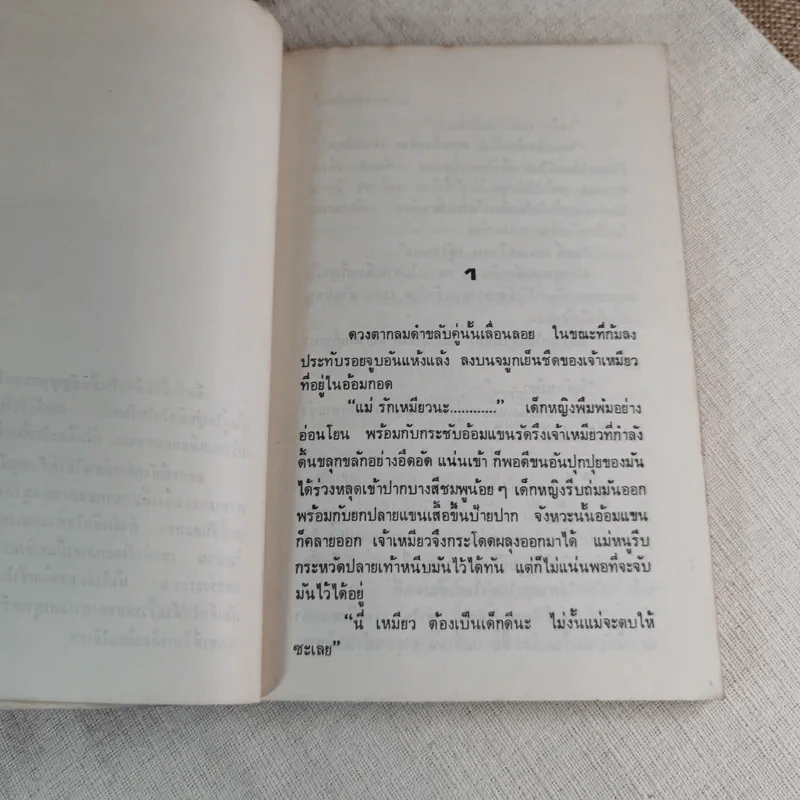 ๑
ดวงตากลมดำขลับคู่นั้นเลื่อนลอย ในขณะที่ก้มลง
ประทับรอยจูบอันแห้งแล้ง ลงบนจมูกเย็นชืดของเจ้าเหมียว
ที่อยู่ในอ้อมกอด
“แม่ รักเหมียวนะ............” เด็กหญิงพึมพัมอย่าง
อ่อนโยน พร้อมกับกระชับอ้อมแขนรัดรึงเจ้าเหมียวที่กำลัง
ดิ้นขลุกขลักอย่างอึดอัด แน่นเข้า ก็พอดีขนอันปุกปุยของมัน
ได้ร่วงหลุดเข้าปากบางสีชมพูน้อย ๆ เด็กหญิงรีบถ่มมันออก
พร้อมกับยกปลายแขนเสื้อขึ้นป้ายปาก จังหวะนั้นอ้อมแขน
ก็คลายออก เจ้าเหมียวจึงกระโดดผลุงออกมาได้ แม่หนูรีบ
กระหวัดปลายเท้าหนีบมันไว้ได้ทัน แต่ก็ไม่แน่นพอที่จะจับ
มันไว้ได้อยู่
“นี่ เหมียว ต้องเป็นเด็กดีนะ ไม่งั้นแม่จะตบให้
ซะเลย”